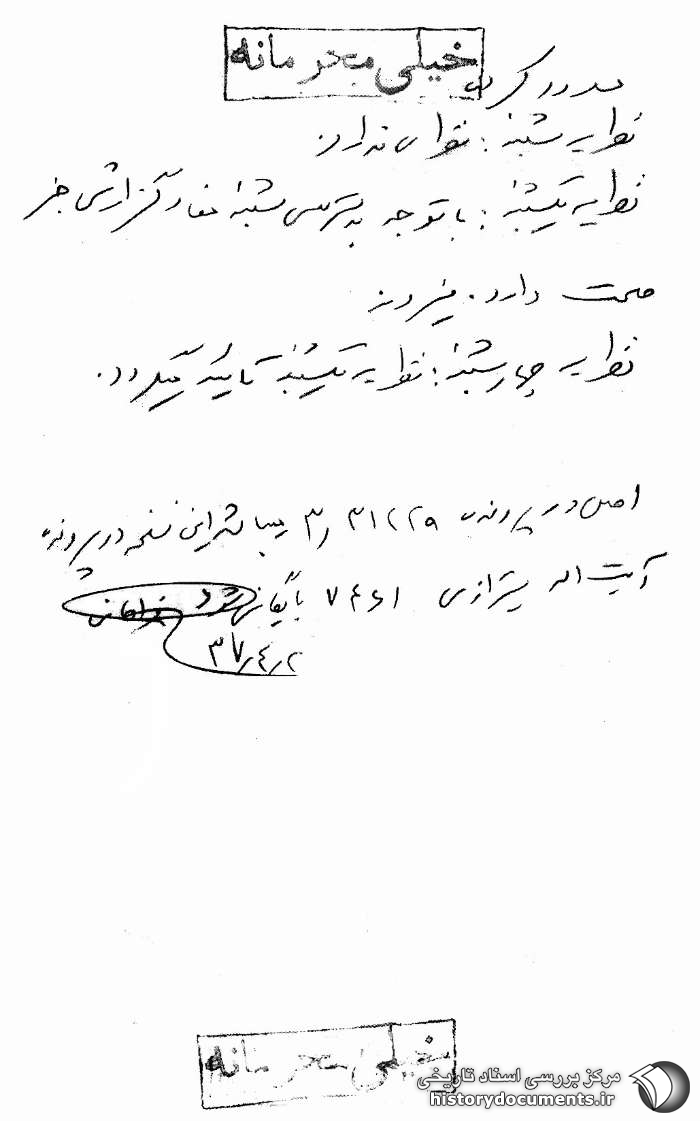 خیلی محرمانه
نظریه شنبه : نظری ندارد.
نظریه یکشنبه : با توجه به دسترسی شنبه مفاد گزارش خبر
صحت دارد. فیروز
نظریه چهارشنبه : نظریه یکشنبه تائید میگردد.
اصل در پرونده ۳۱۲۲۹ میباشد این نسخه در پرونده
آیت اله شیرازی بایگانی شود
خیلی محرمانه
مرکز بررسی اسناد تاریخی
historydocuments.ir